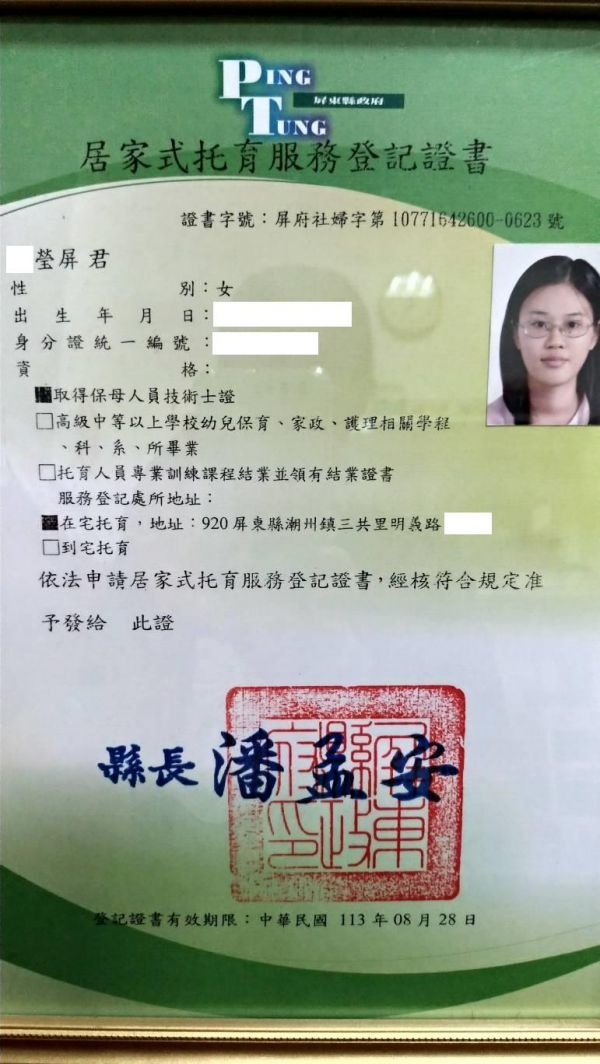 PING
屏東縣政府
TUNG
居家式托育服務登記證書
證書字號：屏府社婦字第10771642600-0623號
瑩屏君
性別：女
出生年月日：
身分證統一編號：
資格：
取得保母人員技術士證
□高級中等以上學校幼兒保育、家政、護理相關學程
、科、系、所畢業
□托育人員專業訓練課程結業並領有結業證書
服務登記處所地址：
在宅托育，地址：920屏東縣潮州鎮三共里明義路
□到宅托育
依法申請居家式托育服務登記證書，經核符合規定准
予發給 此證
縣長 潘孟安
屏東縣政府印
登記證書有效期限：中華民國 113 年 08 月 28 日